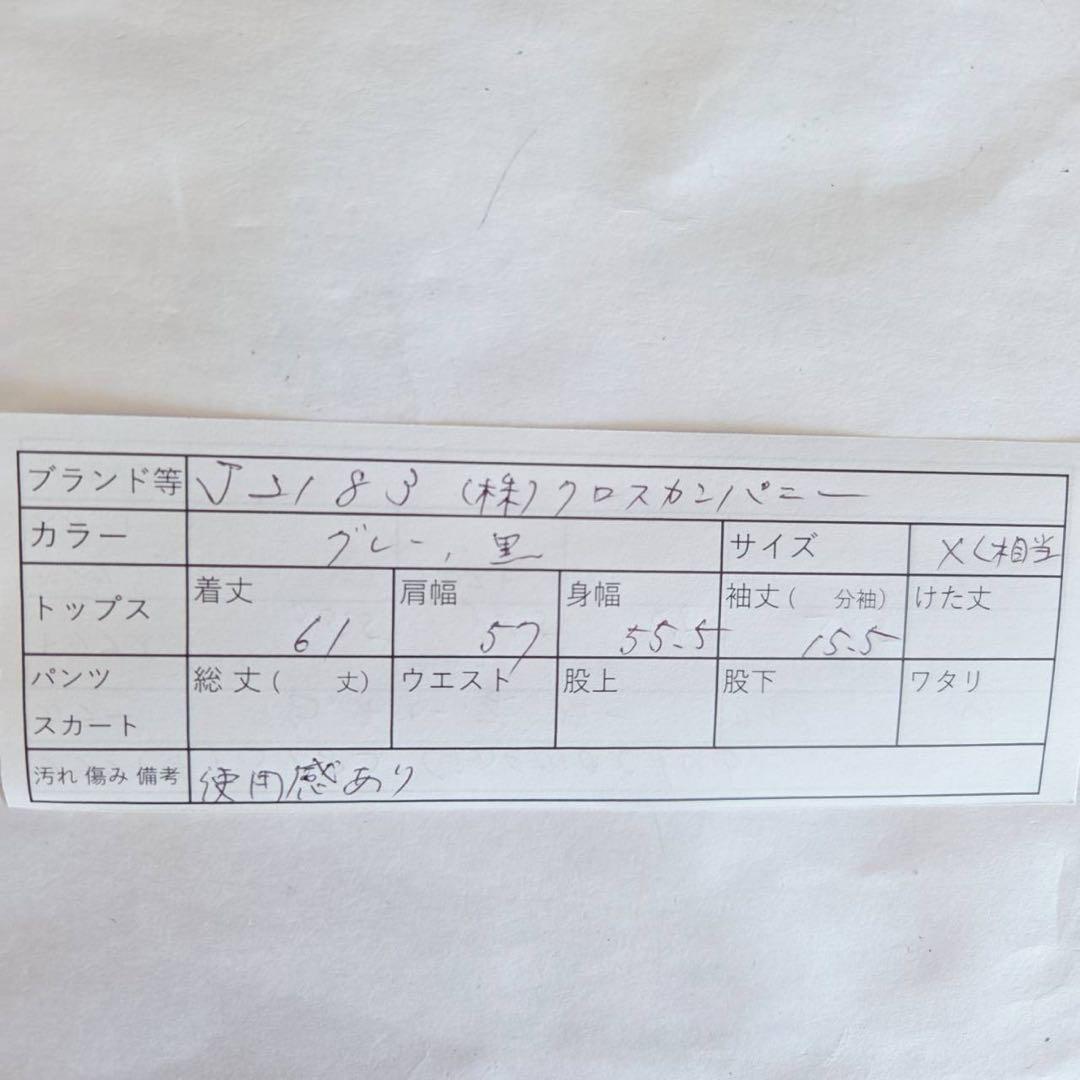 ブランド等 J2183 (株)クロスカンパニー
カラー グレー、黒 サイズ XL相当
トップス 着丈 61 肩幅 57 身幅 55.5 袖丈( 分袖) 15.5 けた丈
パンツ スカート 総丈( 丈) ウエスト 股上 股下 ワタリ
汚れ 傷み 備考 使用感あり